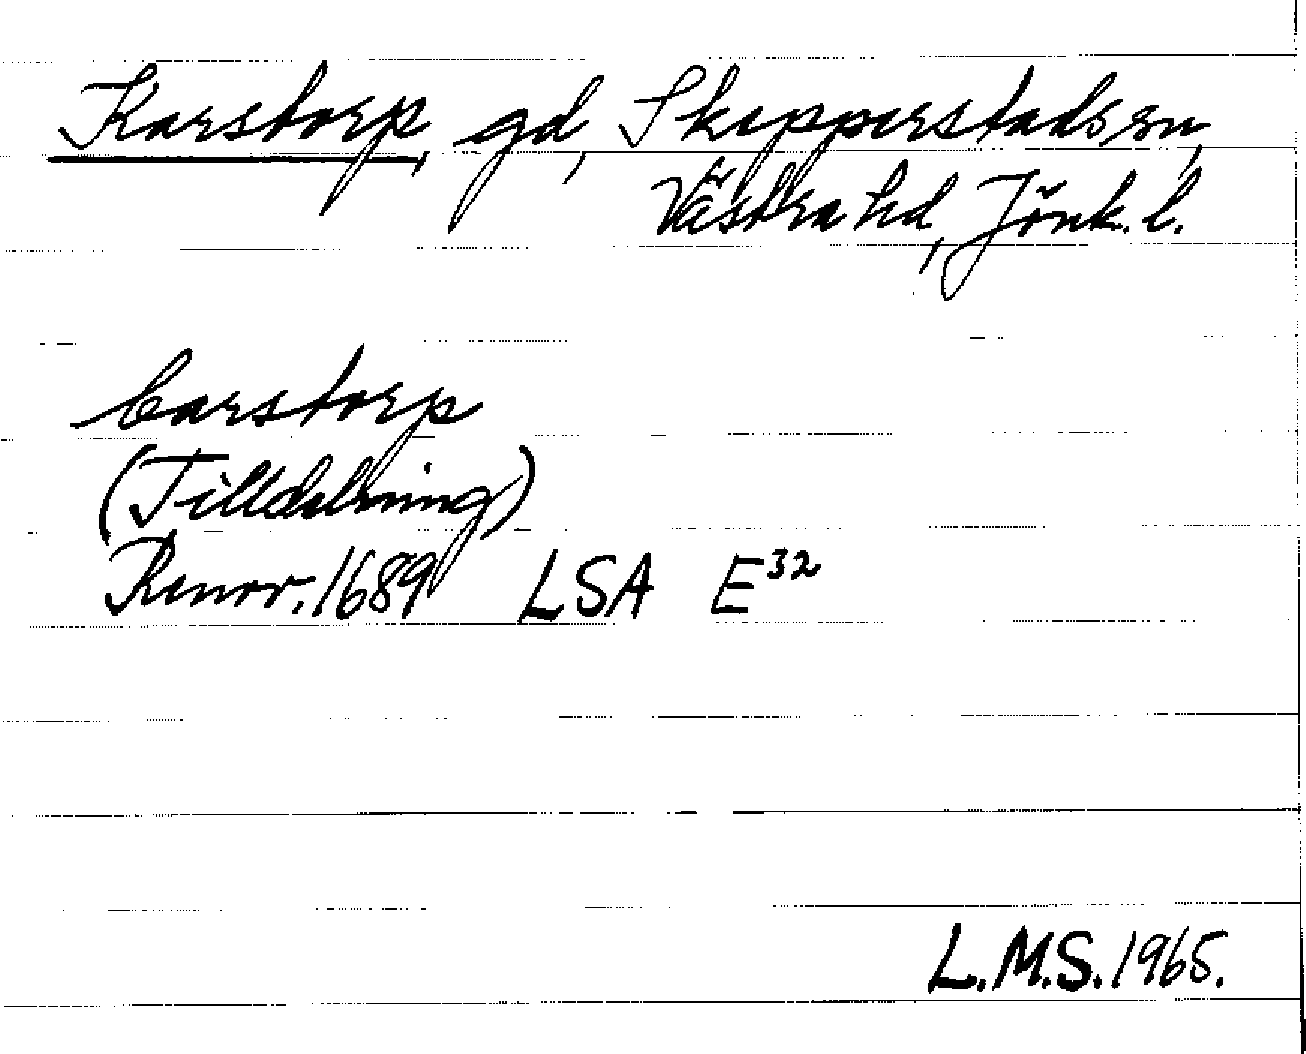 Karstorp, gd, Skepperstads sn,
Västra hd, Jönk. l.
Carstorp
(Tilldelning)
Renov. 1689 LSA E³²
L.M.S. 1965.